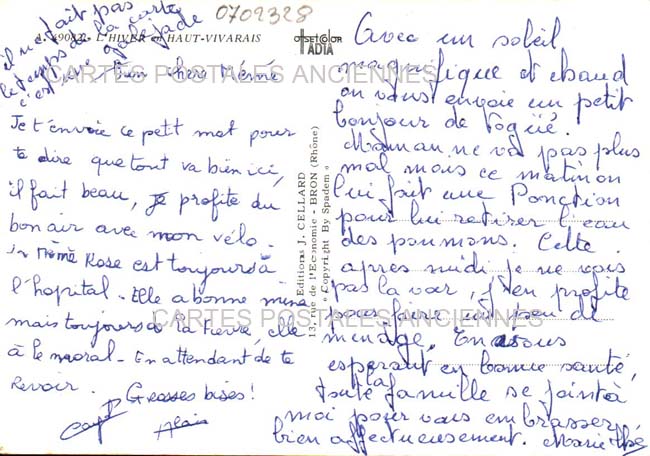 0709328
A. 49082 - L'HIVER en HAUT-VIVARAIS
offset color
ADIA
il ne fait pas
le temps de la carte
c'est une galejade
CARTES POSTALES ANCIENNES
Bien chère Mémé
Je t'envoie ce petit mot pour
te dire que tout va bien ici,
il fait beau, je profite du
bon air avec mon vélo.
Mémé Rose est toujours à
l'hopital. Elle a bonne mine
mais toujours de la fièvre, elle
CARTES POSTALES ANCIENNES
à le moral. En attendant de te
revoir. Grosses bises!
Alain
Editions J. CELLARD
13, rue de l'Economie - BRON (Rhône)
« Copyright By Spadem »
Avec un soleil
magnifique et chaud
on vous envoie un petit
bonjour de Vogüé.
Maman ne va pas plus
mal mais ce matin on
lui fait une Ponction
pour lui retirer l'eau
des poumons. Cette
après midi je ne vais
pas la voir, j'en profite
pour faire un peu de
ménage. En vous
esperant en bonne santé,
toute la famille se joint à
moi pour vous embrasser
bien affectueusement. Marie